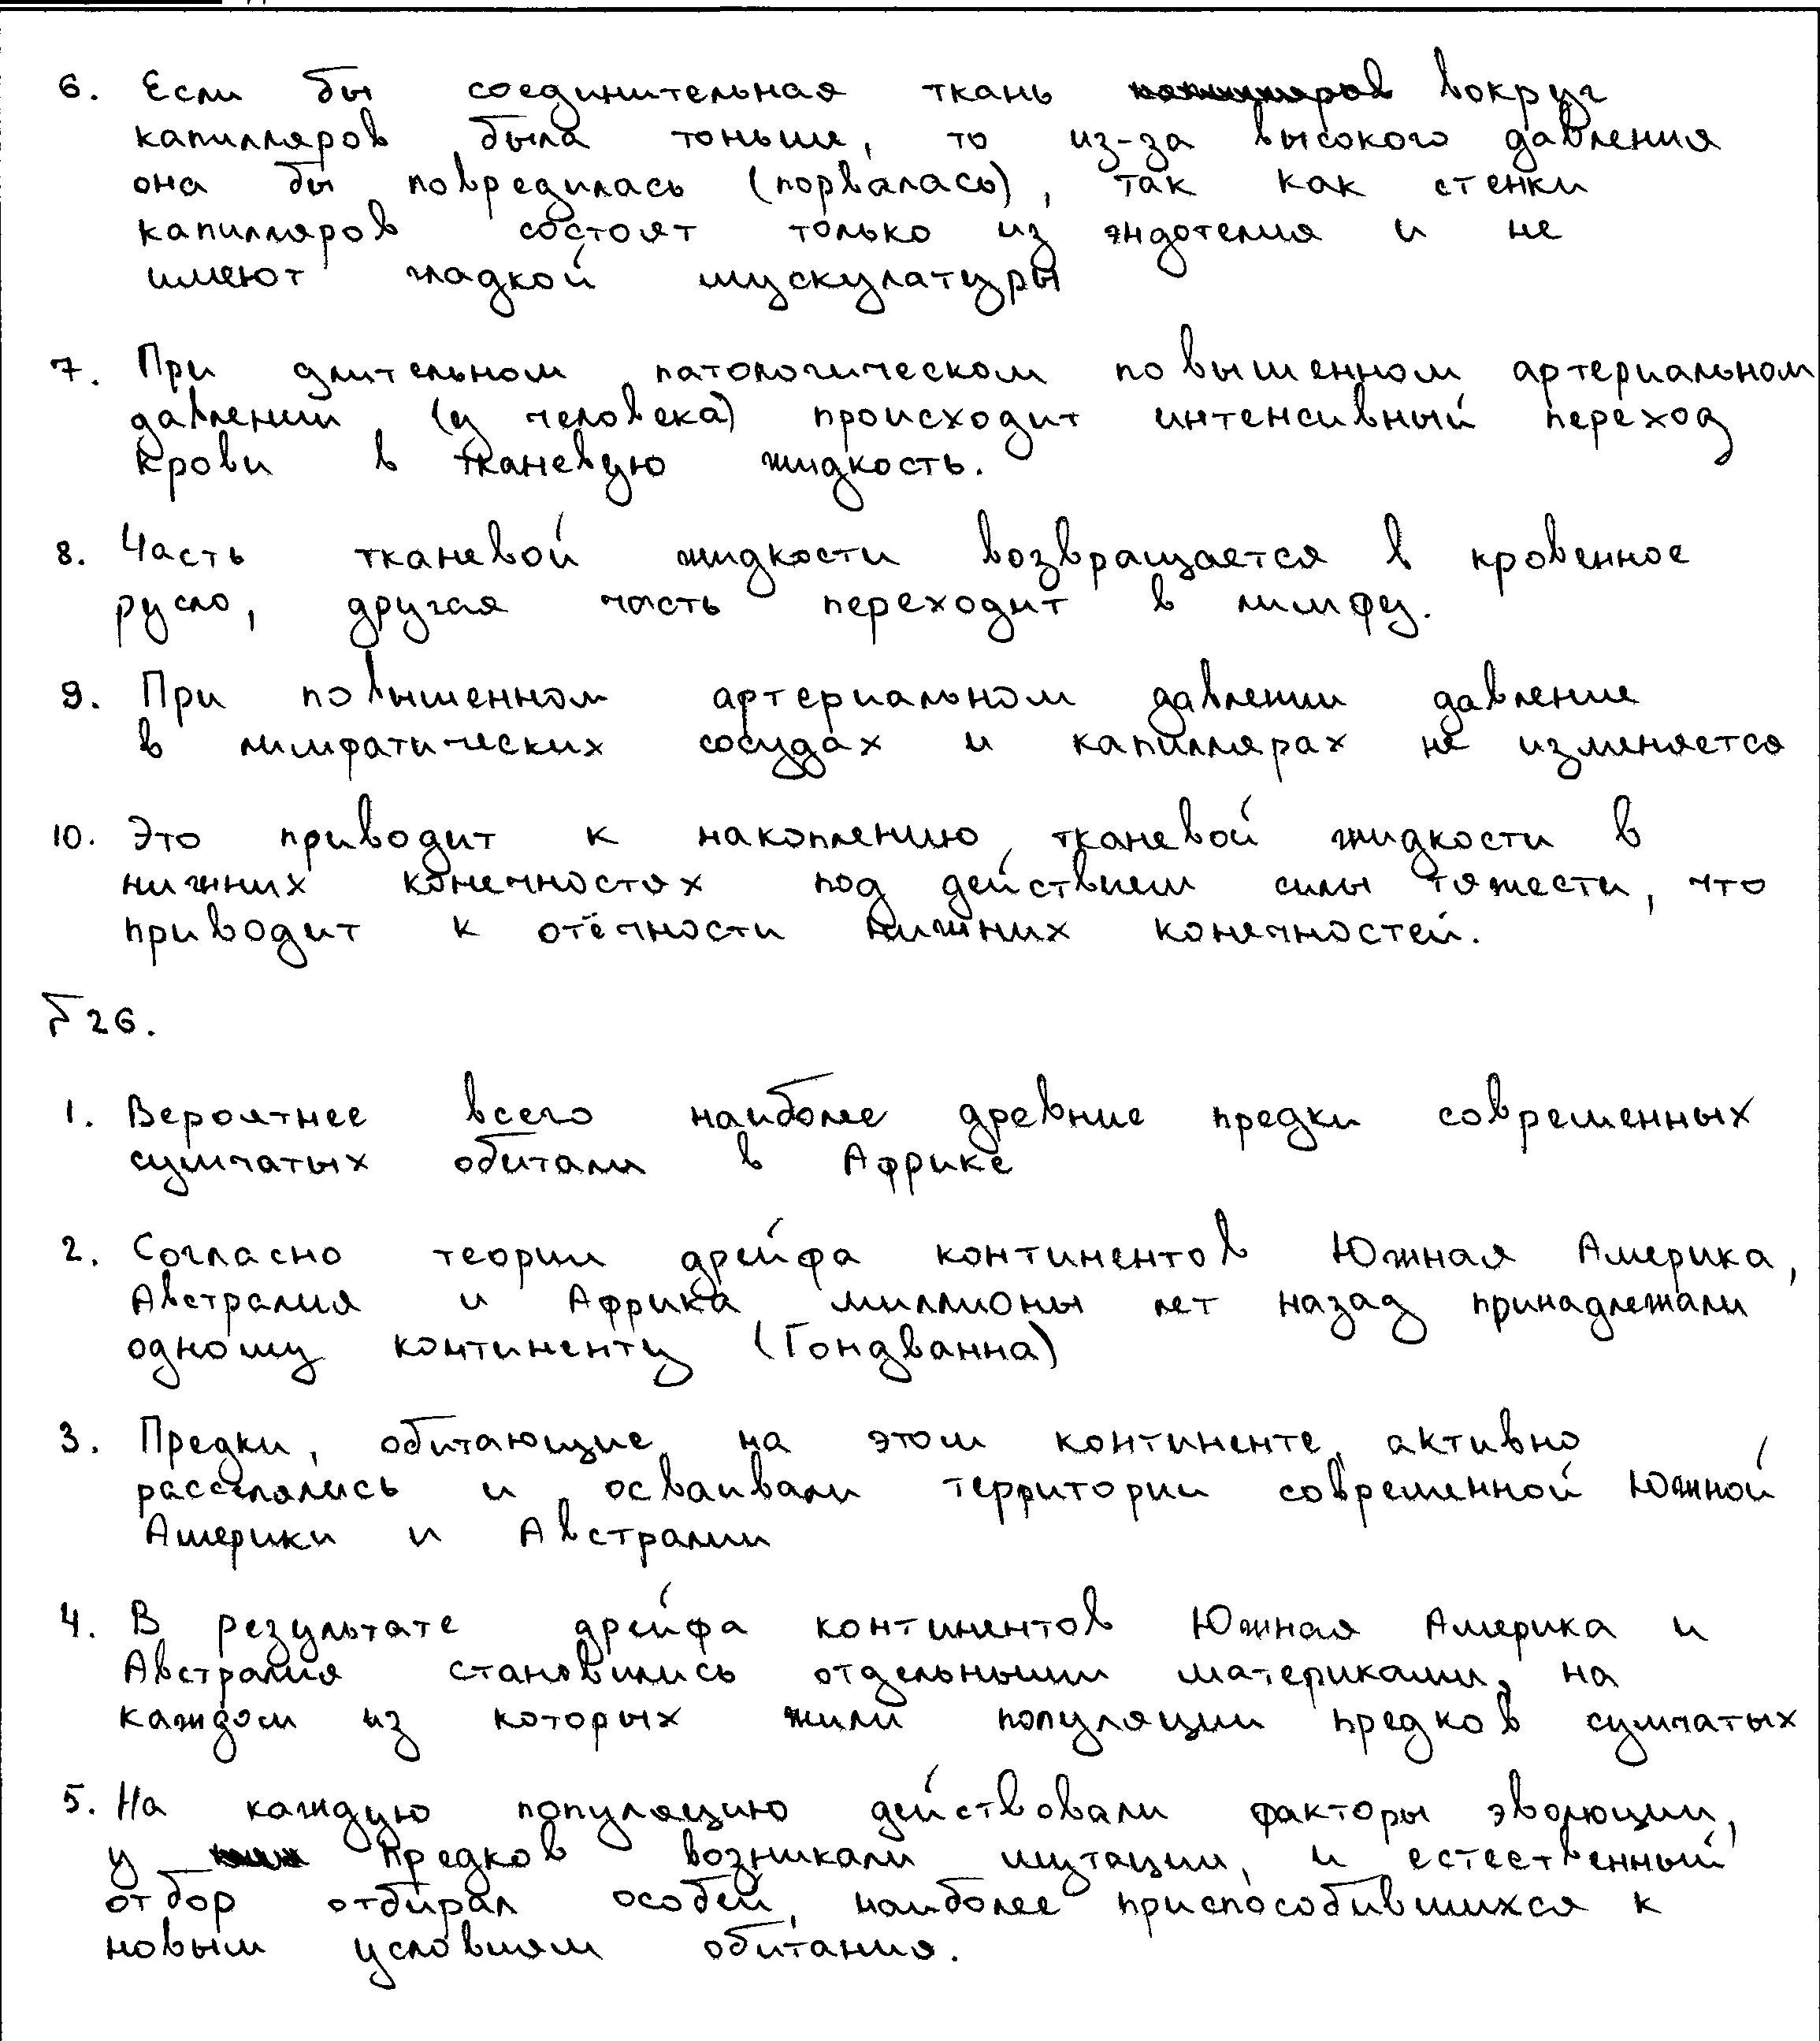 6. Если бы соединительная ткань вокруг
капилляров была тоньше, то из-за высокого давления
она бы повредилась (порвалась), так как стенки
капилляров состоят только из эндотелия и не
имеют гладкой мускулатуры
7. При длительном патологическом повышенном артериальном
давлении (у человека) происходит интенсивный переход
крови в тканевую жидкость.
8. Часть тканевой жидкости возвращается в кровенное
русло, другая часть переходит в лимфу.
9. При повышенном артериальном давлении давление
в лимфатических сосудах и капиллярах не изменяется
10. Это приводит к накоплению тканевой жидкости в
нижних конечностях под действием силы тяжести, что
приводит к отёчности нижних конечностей.
26.
1. Вероятнее всего наиболее древние предки современных
сумчатых обитали в Африке
2. Согласно теории дрейфа континентов Южная Америка,
Австралия и Африка миллионы лет назад принадлежали
одному континенту (Гондванна)
3. Предки, обитающие на этом континенте, активно
расселялись и осваивали территории современной Южной
Америки и Австралии
4. В результате дрейфа континентов Южная Америка и
Австралия становились отдельными материками, на
каждом из которых жили популяции предков сумчатых
5. На каждую популяцию действовали факторы эволюции,
у предков возникали мутации, и естественный
отбор отбирал особей, наиболее приспособившихся к
новым условиям обитания.